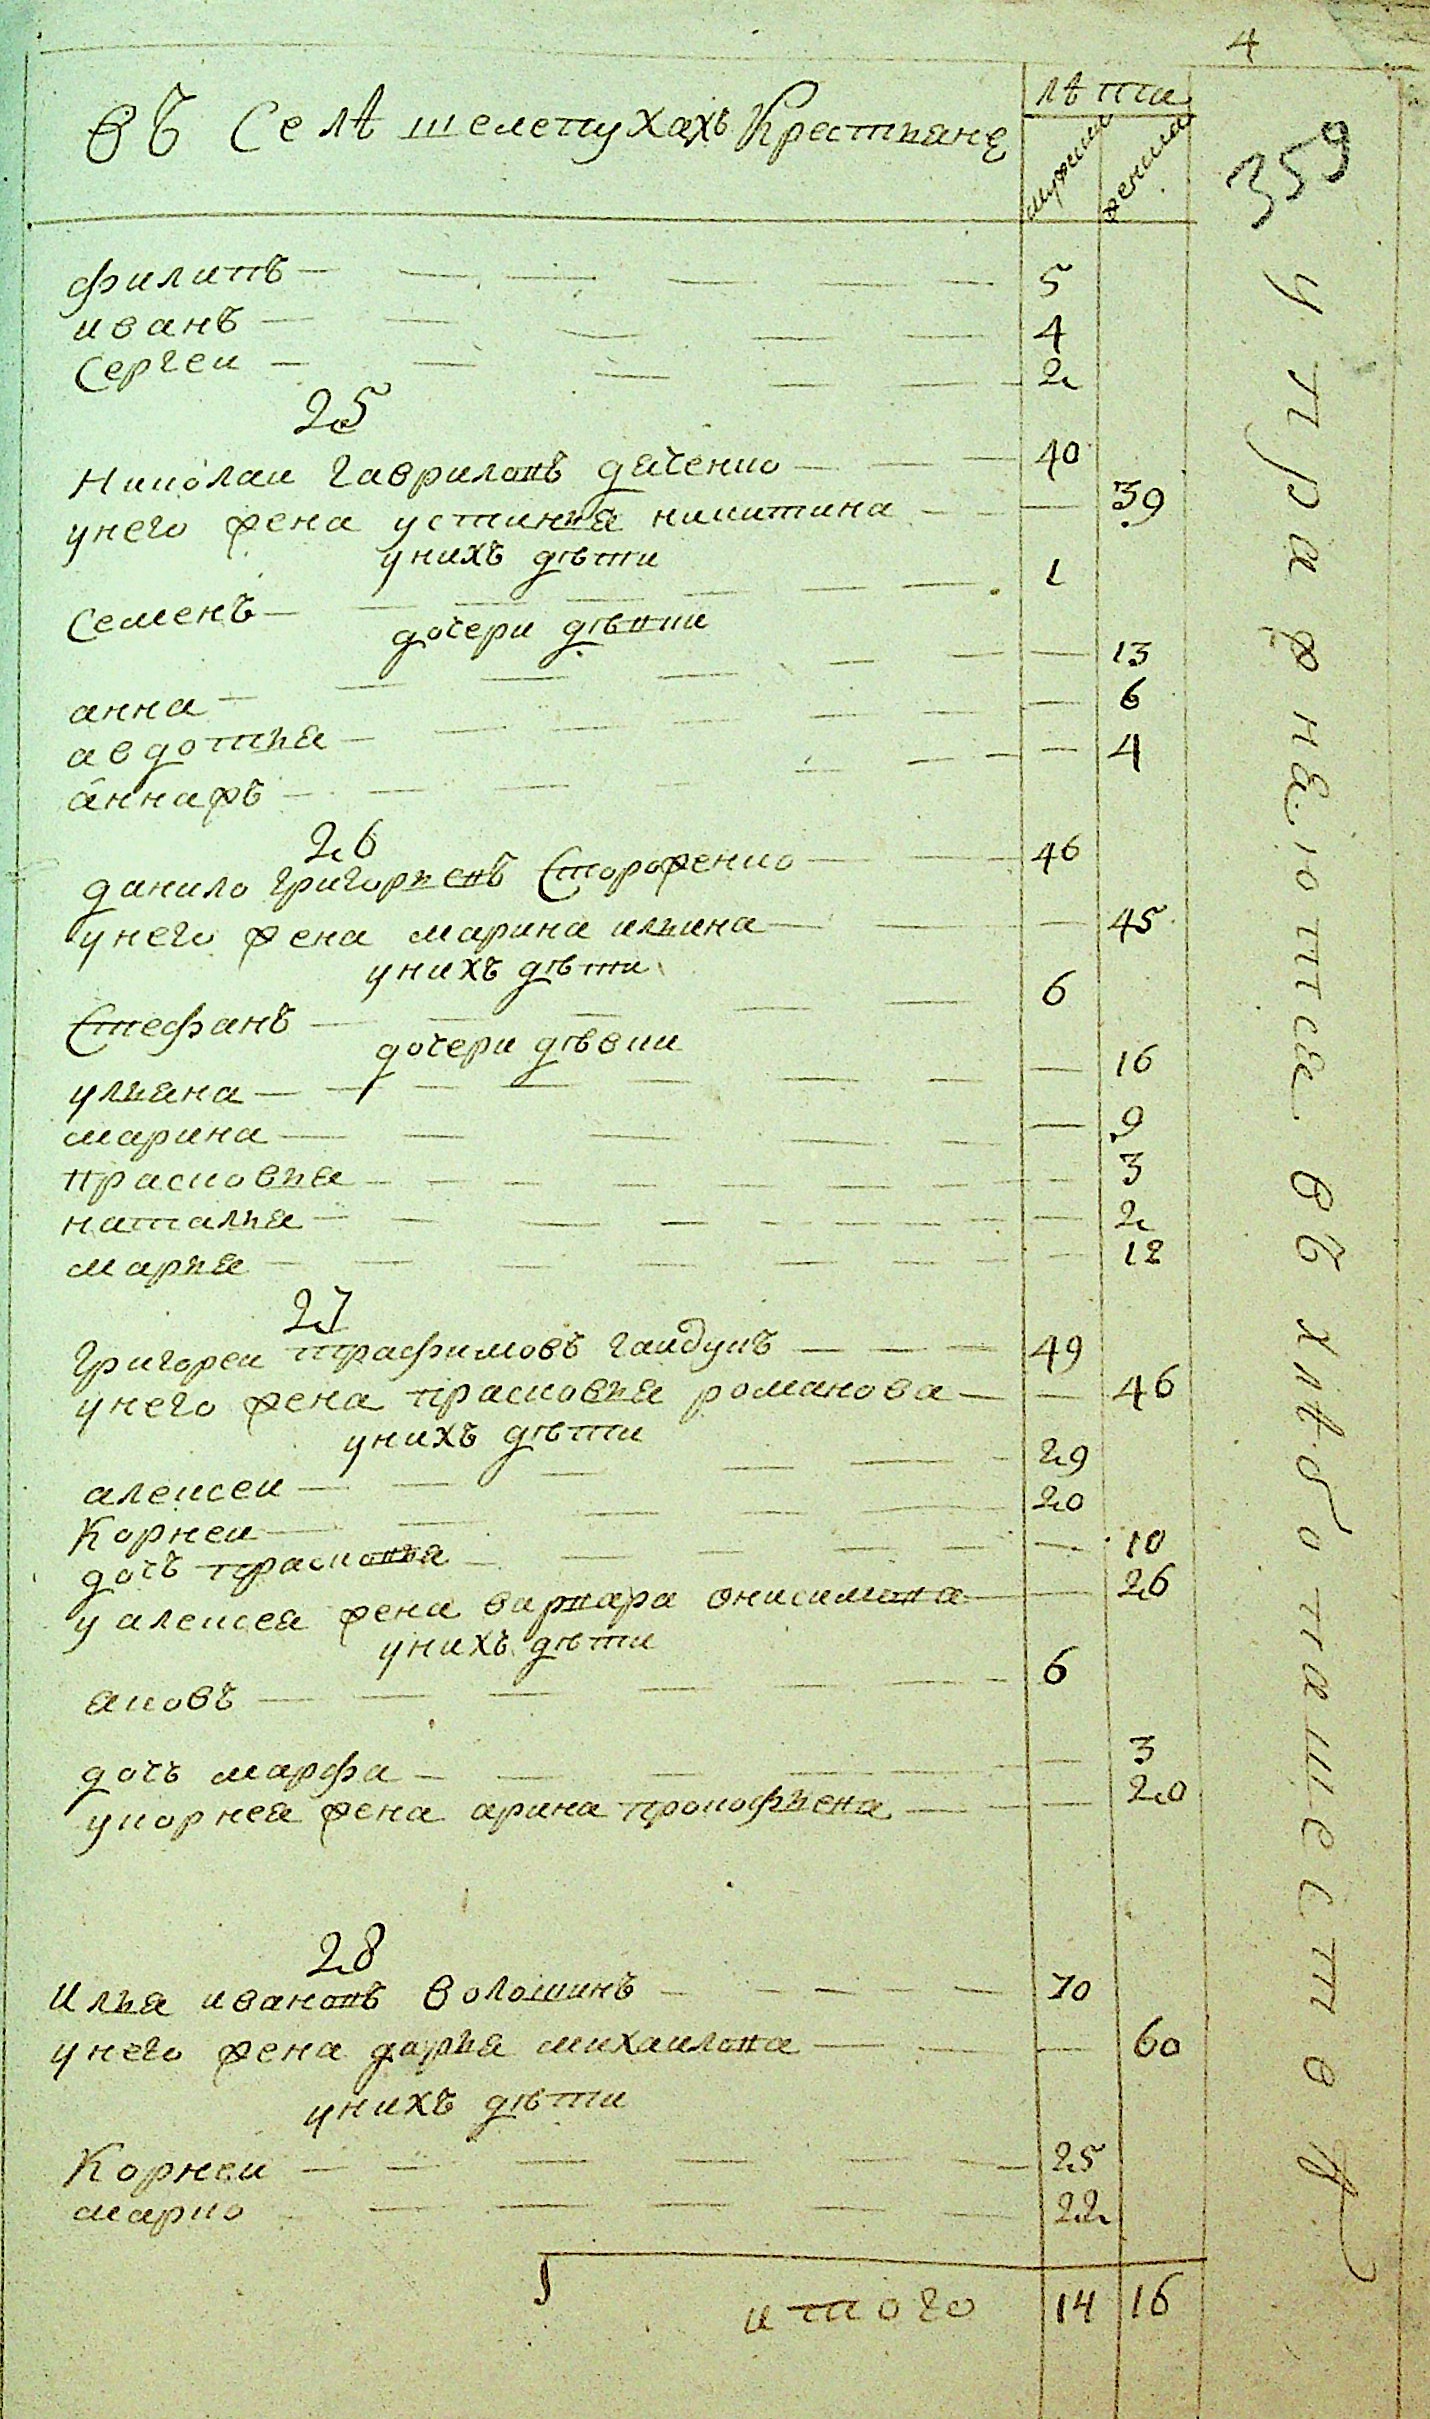 4
въ селѣ шелепухахъ крестьяне
лѣта
мужска
женска
359
филипъ 5
иванъ 4
сергеи 2
25
николаи гавриловъ дяченко 40
унего жена устинья никитина 39
унихъ дѣти
семенъ 1
дочери дѣвки
анна 13
авдотья 6
аннажъ 4
26
данило григорьевъ сторженко 46
унего жена марина ильина 45
унихъ дѣти
стефанъ 6
дочери дѣвки
ульяна 16
марина 9
прасковья 3
наталья 2
марья 12
27
григореи трафимовъ гаидукъ 49
унего жена прасковья романова 46
унихъ дѣти
алексеи 29
корнеи 20
дочъ прасковья 10
у алексея жена варвара онисимова 26
унихъ дѣти
яковъ 6
дочъ марфа 3
укорнея жена арина прокофьева 20
28
илья ивановъ волошинъ 70
унего жена дарья михаилова 60
унихъ дѣти
корнеи 25
марко 22
итого 14 16
упражняются въ хлѣбопашествѣ